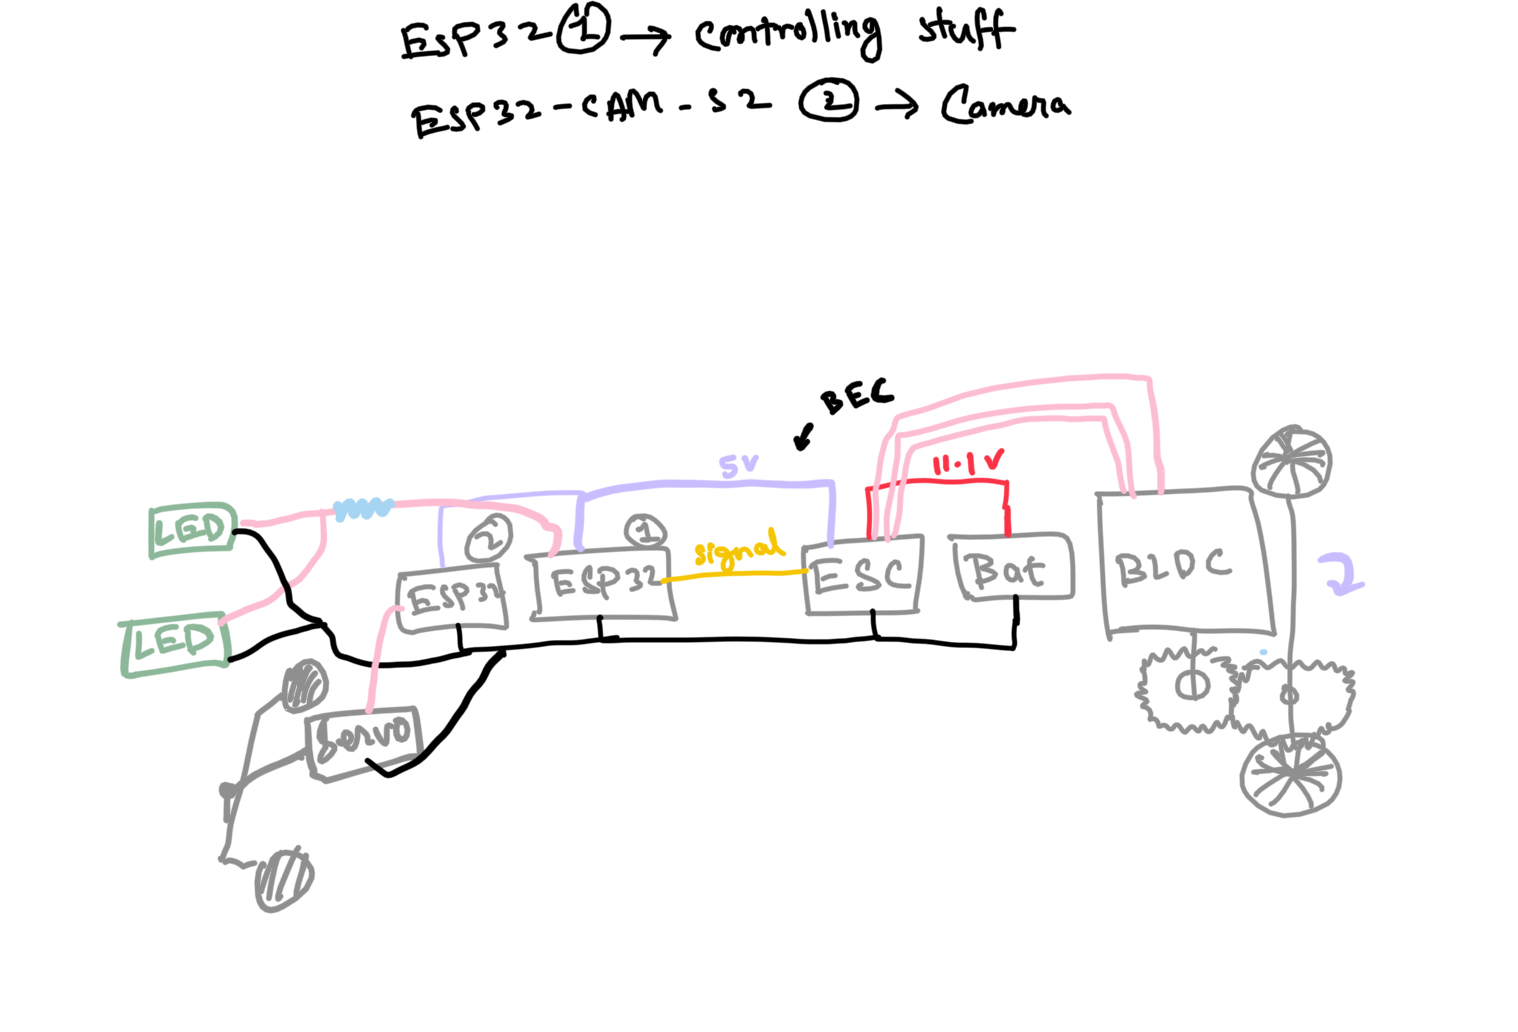 ESP32 ① → controlling stuff
ESP32-CAM-S2 ② → Camera
BEC
5V
11.1V
LED
②
①
signal
ESP32
ESP32
ESC
Bat
BLDC
LED
Servo